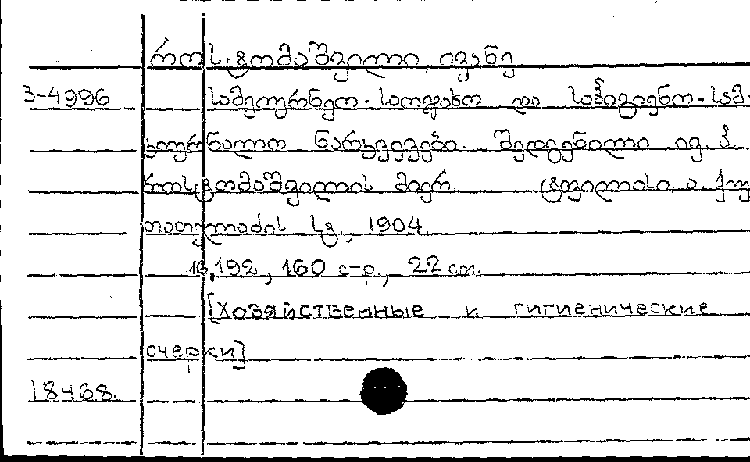 როსტომაშვილი, ივანე
3-4996 სამეურნეო-საოჯახო და საჰიგიენო-სამ-
კურნალო წარკვევები. შედგენილი ივ. პ.
როსტომაშვილის მიერ
თათელაძის სტ., 1904.
192, 160 с-р., 22 см.
[Хозяйственные и гигиенические
очерки]
18468.